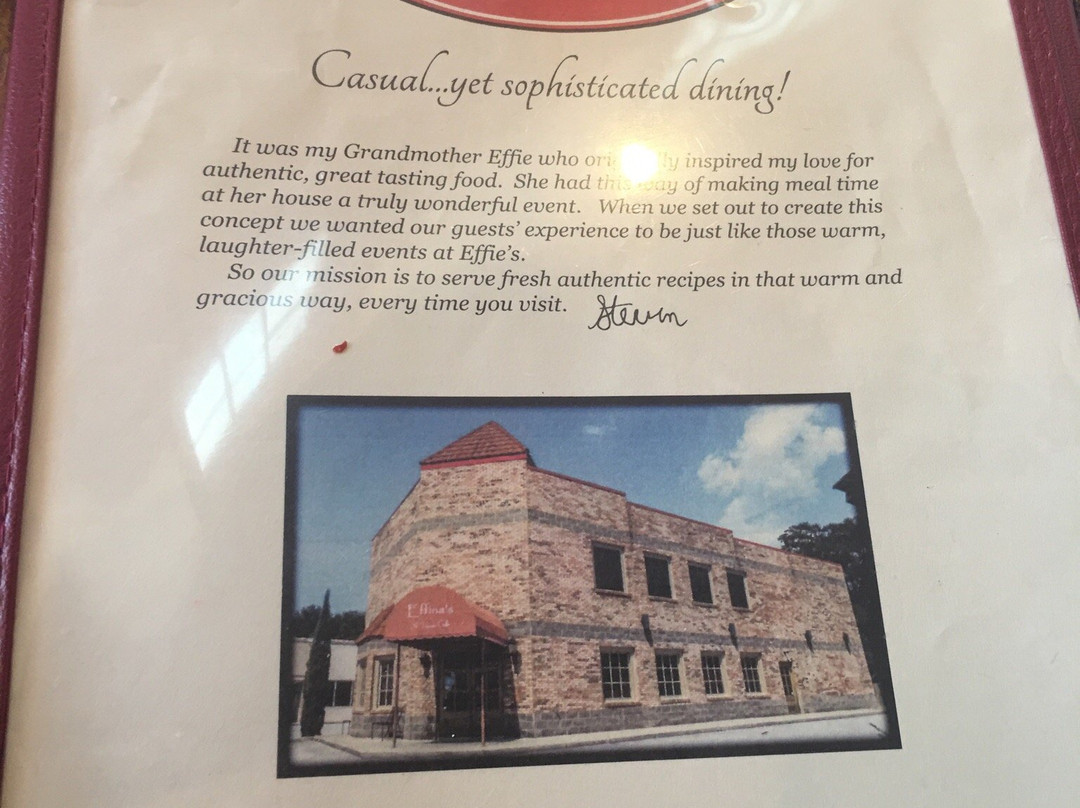 Casual...yet sophisticated dining!
It was my Grandmother Effie who inspired my love for
authentic, great tasting food. She had this way of making meal time
at her house a truly wonderful event. When we set out to create this
concept we wanted our guests' experience to be just like those warm,
laughter-filled events at Effie's.
So our mission is to serve fresh authentic recipes in that warm and
gracious way, every time you visit. Steven
Effina's